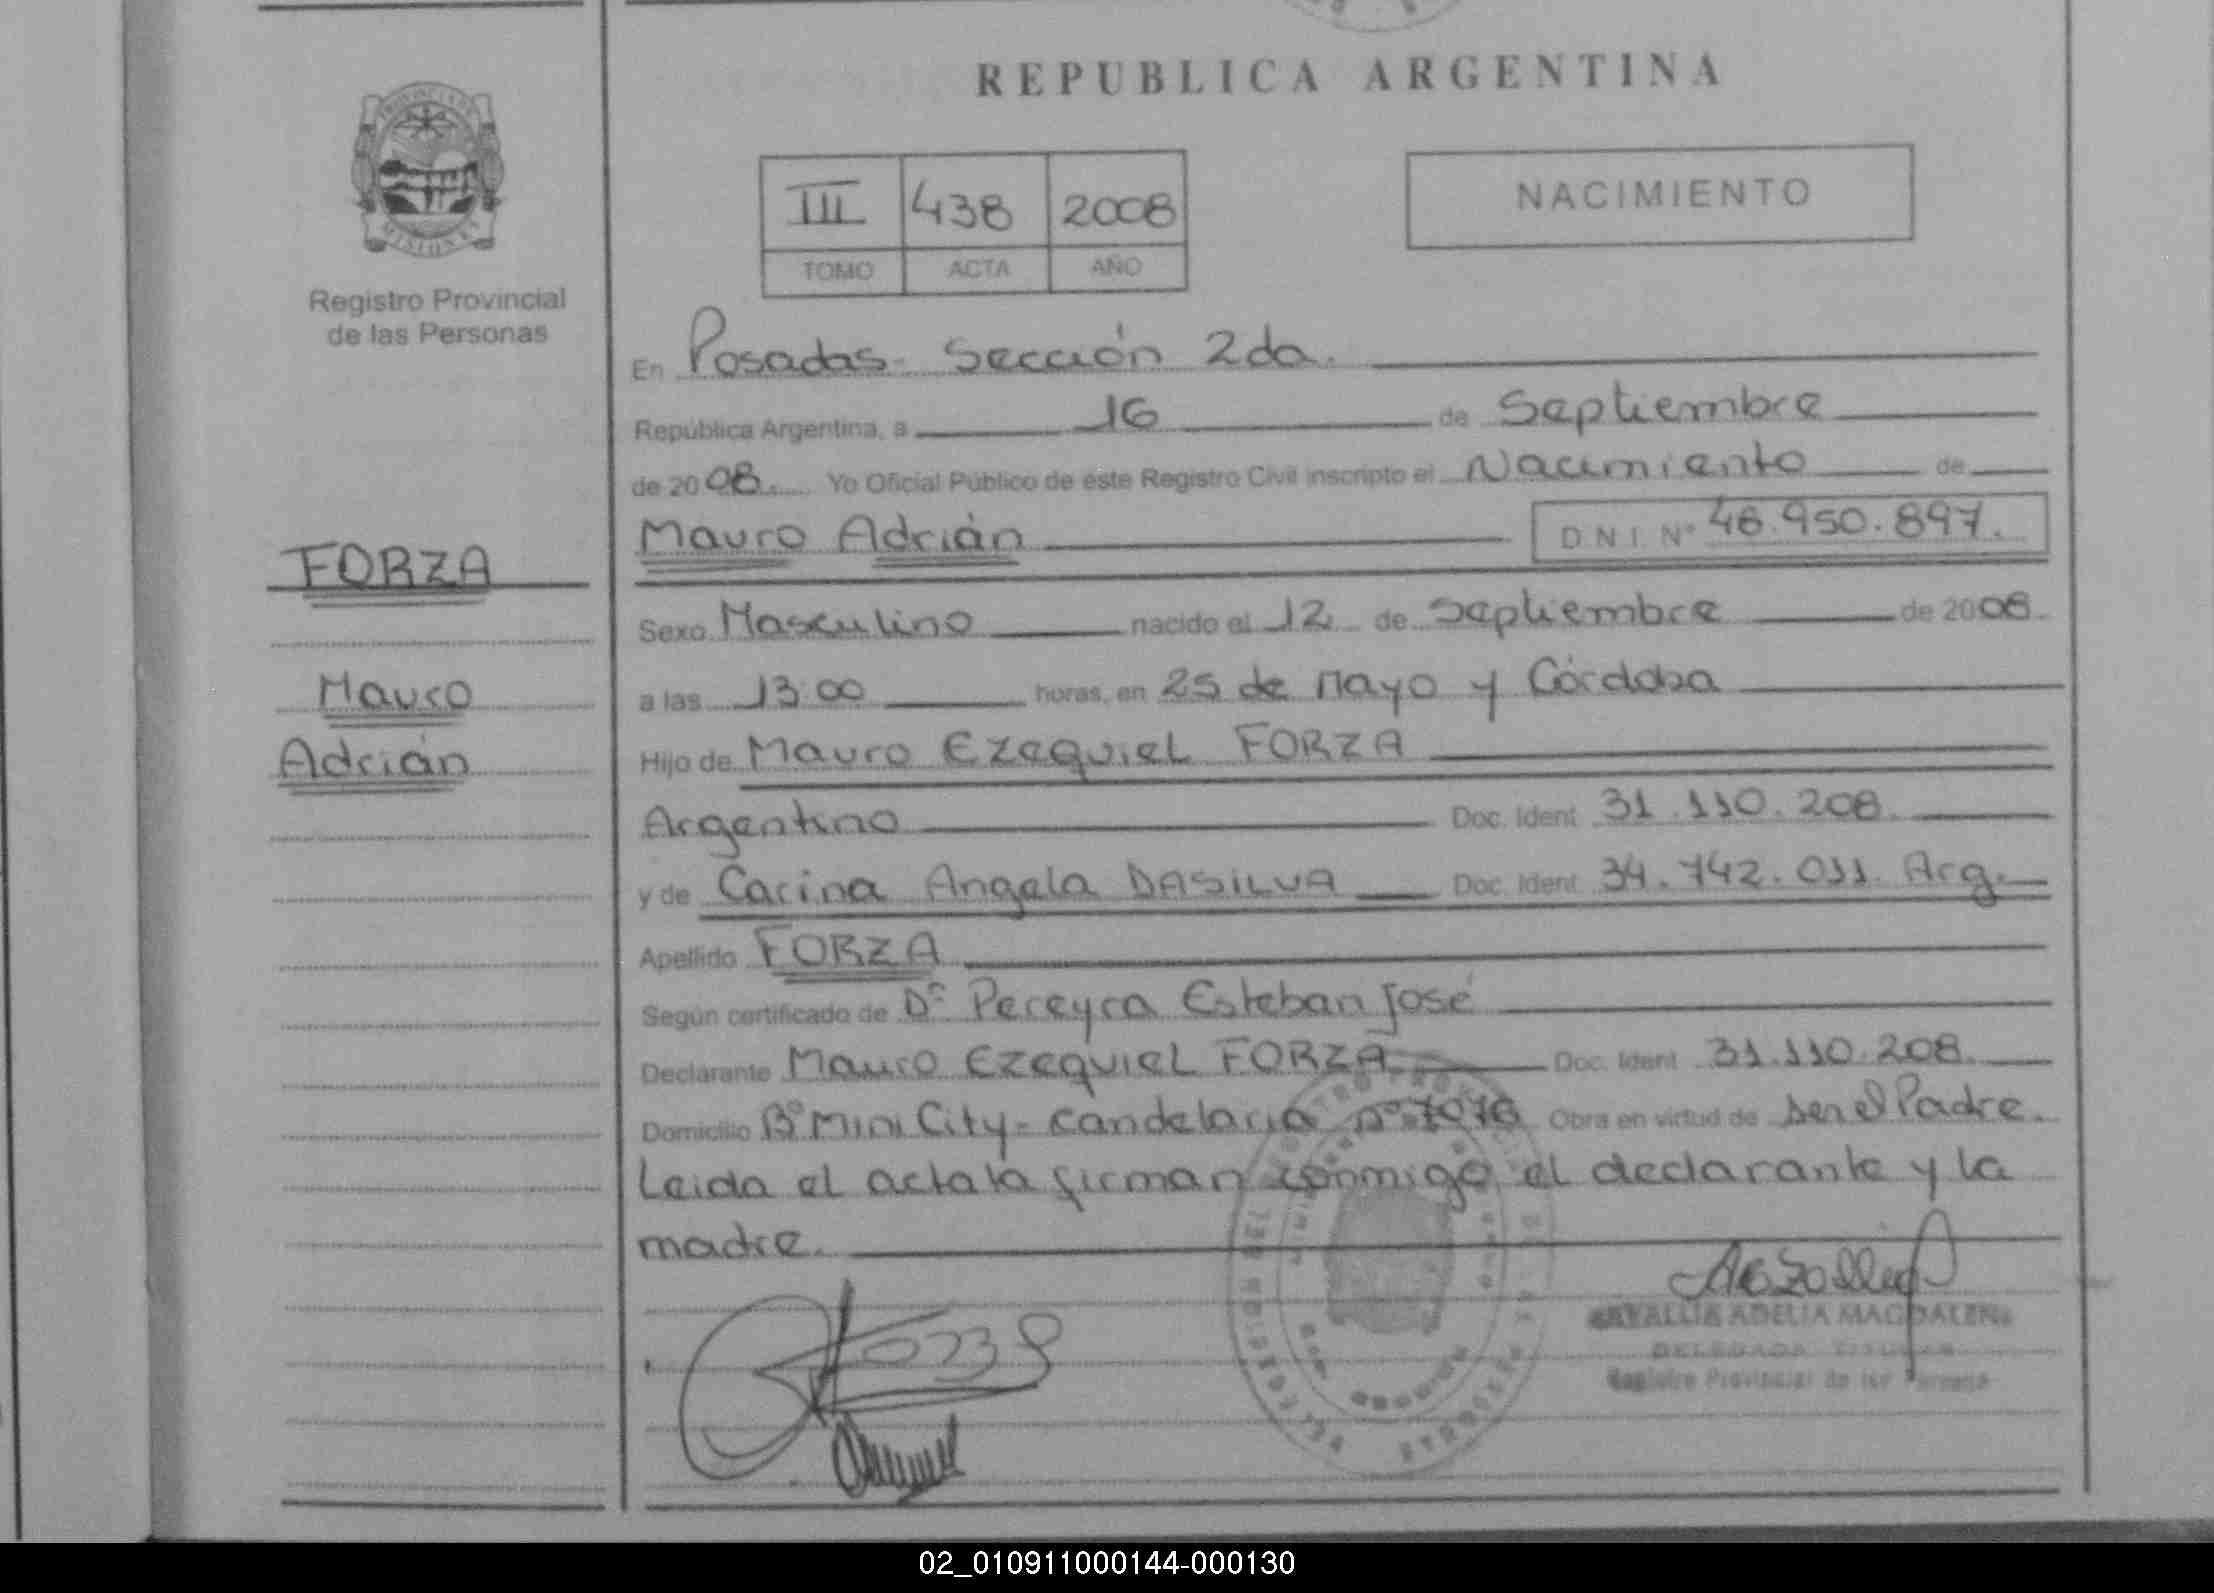 REPUBLICA ARGENTINA
PROVINCIA DE
MISIONES
Registro Provincial
de las Personas
III 438 2008
TOMO ACTA AÑO
NACIMIENTO
En Posadas - Sección 2da.
República Argentina, a 16 de Septiembre
de 2008. Yo Oficial Público de este Registro Civil inscripto el Nacimiento de
Mauro Adrián D.N.I. Nº 48.950.897.
FORZA
Mauro
Adrián
Sexo Masculino nacido el 12 de Septiembre de 2008.
a las 13:00 horas, en 25 de Mayo y Córdoba
Hijo de Mauro Ezequiel FORZA
Argentino Doc. Ident 31.110.208.
y de Carina Angela DASILVA Doc. Ident 34.742.011. Arg.
Apellido FORZA
Según certificado de Dr. Pereyra Esteban José
Declarante Mauro Ezequiel FORZA Doc. Ident 31.110.208.
Domicilio Bº Mini City - Candelaria nº 7076 Obra en virtud de ser el Padre.
Leida el acta la firman conmigo el declarante y la
madre.
ADELIA MAGDALENA
DELEGADA TITULAR
Registro Provincial de las Personas
02_010911000144-000130